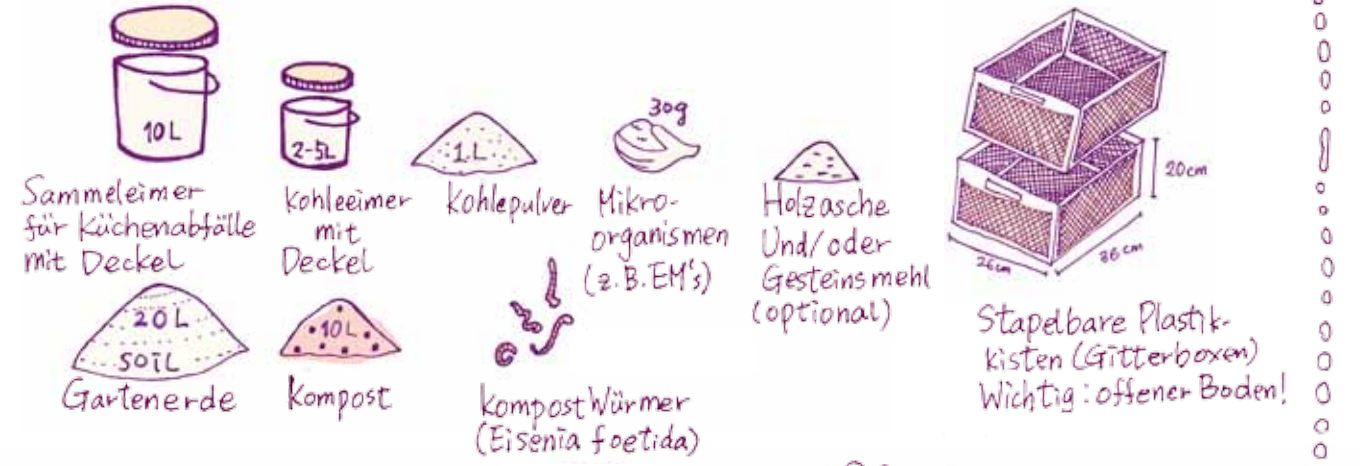 10L
Sammeleimer
für Küchenabfälle
mit Deckel
2-5L
Kohleeimer
mit
Deckel
1L
Kohlepulver
30g
Mikro-
organismen
(z.B. EM's)
Holzasche
Und/oder
Gesteinsmehl
(optional)
20cm
26cm
36cm
Stapelbare Plastik-
kisten (Gitterboxen)
Wichtig: offener Boden!
20L
SOIL
Gartenerde
10L
Kompost
KompostWürmer
(Eisenia foetida)